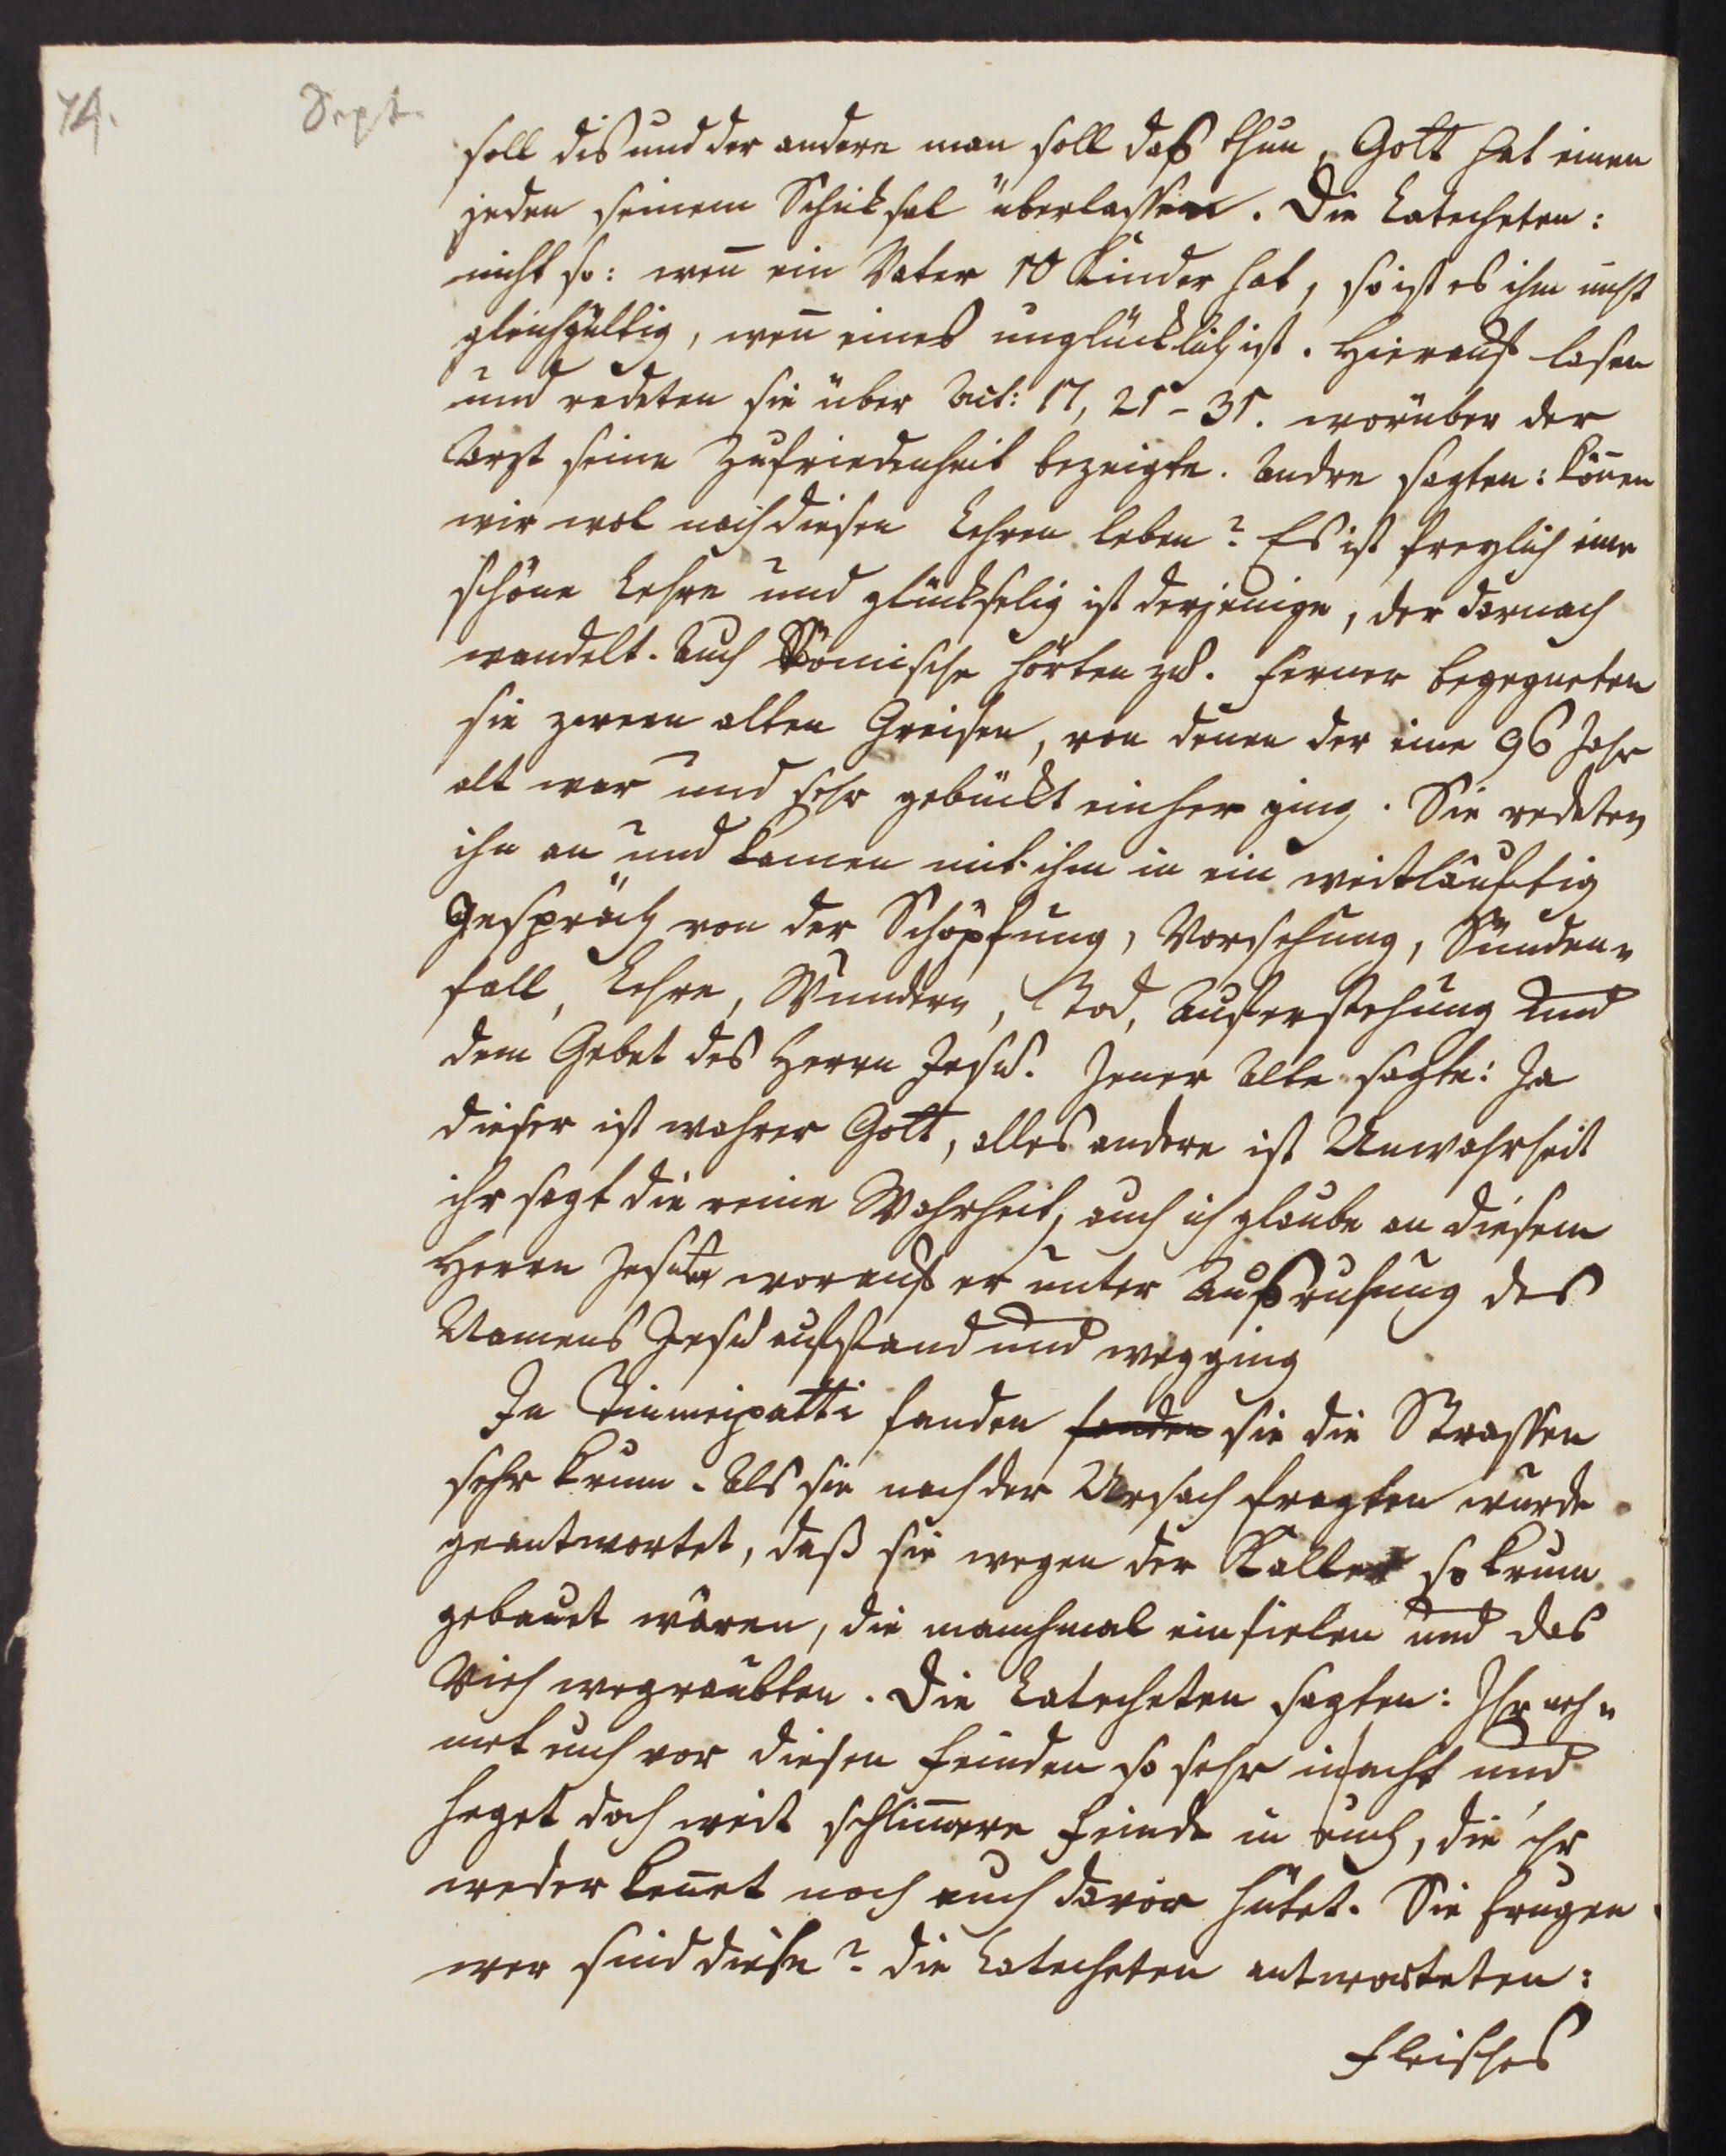 74.
Sept.
soll dis und der andere man soll daß thun, Gott hat einen
jeden seinem Schicksal überlassen. Die Catecheten:
nicht so: weñ ein Vater 10 Kinder hat, so ist es ihm nicht
gleichgültig, weñ eines unglücklich ist. Hierauf lasen
und redeten sie über Act: 17, 21-31. worüber der
Arzt seine Zufriedenheit bezeigte. Andre sagten: Köñen
wir wol nach diesen Lehren leben? Es ist freylich eine
schöne Lehre und glückselig ist derjenige, der darnach
wandelt. Auch Römische hörten zu. Ferner begegneten
sie zween alten Greisen, von denen der eine 96 Jahr
alt war und sehr gebückt einher ging. Sie redeten
ihn an und kamen mit ihm in ein weitläuftig
Gespräch von der Schöpfung, Vorsehung, Sünden-
fall, Lehre, Wundern, Tod, Auferstehung und
dem Gebet des Herrn Jesu. Jener Alte sagte: Ja
dieser ist wahrer Gott, alles andere ist Unwahrheit
ihr sagt die reine Wahrheit, auch ich glaube an diesem
Herrn Jesum worauf er unter Ausrufung des
Namens Jesu aufstand und wegging
In Tinneipatti fanden fanden sie die Strassen
sehr krum. Als sie nach der Ursach fragten wurde
geantwortet, daß sie wegen der Kaller so krum
gebauet wären, die manchmal einfielen und das
Vieh wegraubten. Die Catecheten sagten: Ihr neh-
met euch vor diesen Feinden so sehr in acht und
heget doch weit schlim̃ere Feinde in euch, die ihr
weder keñet noch euch davor hütet. Sie frugen
wer sind diese? die Catecheten antworteten:
Fleisches